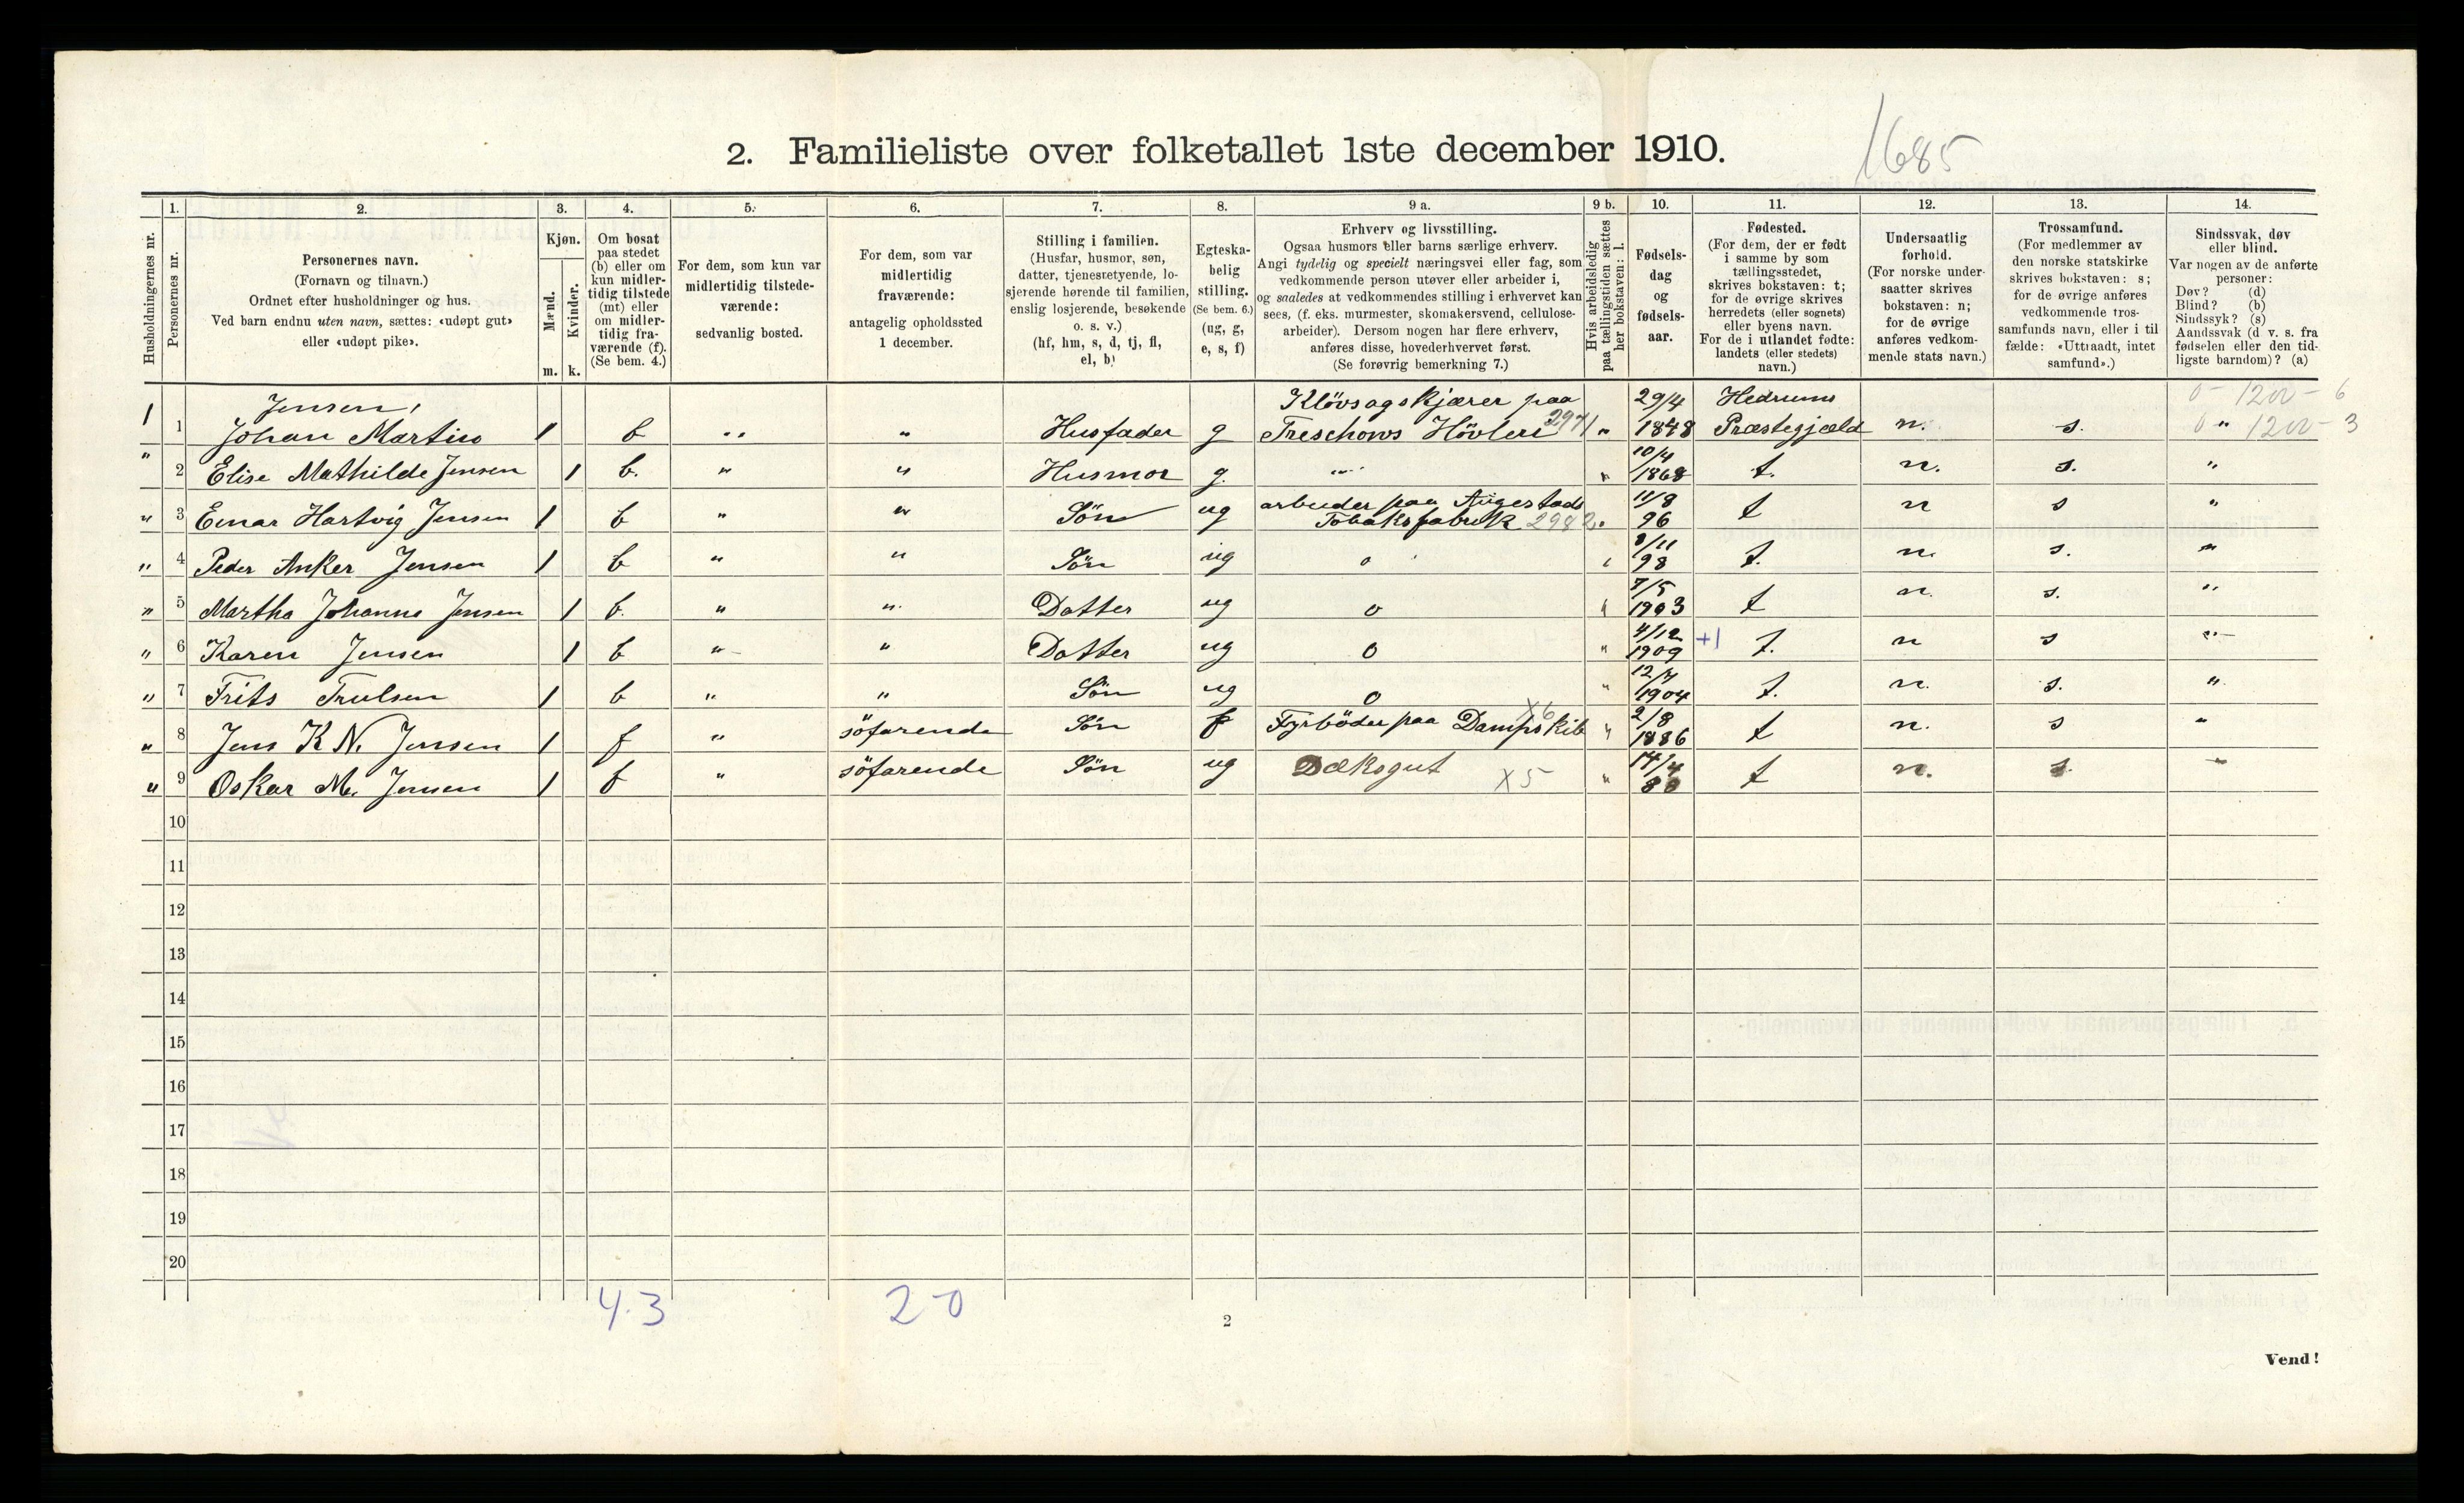 1685
2. Familieliste over folketallet 1ste december 1910.
1. 2. 3. 4. 5. 6. 7. 8. 9 a. 9 b. 10. 11. 12. 13. 14.
Husholdningernes nr.
Personernes nr.
Personernes navn.
(Fornavn og tilnavn.)
Ordnet efter husholdninger og hus.
Ved barn endnu uten navn, sættes: «udøpt gut»
eller «udøpt pike».
Kjøn.
Mænd.
Kvinder.
m. k.
Om bosat
paa stedet
(b) eller om
kun midler-
tidig tilstede
(mt) eller
om midler-
tidig fra-
værende (f).
(Se bem. 4.)
For dem, som kun var
midlertidig tilstede-
værende:
sedvanlig bosted.
For dem, som var
midlertidig
fraværende:
antagelig opholdssted
1 december.
Stilling i familien.
(Husfar, husmor, søn,
datter, tjenestetyende, lo-
sjerende hørende til familien,
enslig losjerende, besøkende
o. s. v.)
(hf, hm, s, d, tj, fl,
el, b)
Egteska-
belig
stilling.
(Se bem. 6.)
(ug, g,
e, s, f)
Erhverv og livsstilling.
Ogsaa husmors eller barns særlige erhverv.
Angi tydelig og specielt næringsvei eller fag, som
vedkommende person utøver eller arbeider i,
og saaledes at vedkommendes stilling i erhvervet kan
sees, (f. eks. murmester, skomakersvend, cellulose-
arbeider). Dersom nogen har flere erhverv,
anføres disse, hovederhvervet først.
(Se forøvrig bemerkning 7.)
Hvis arbeidsledig
paa tællingstiden sættes
her bokstaven: l.
Fødsels-
dag
og
fødsels-
aar.
Fødested.
(For dem, der er født
i samme by som
tællingsstedet,
skrives bokstaven: t;
for de øvrige skrives
herredets (eller sognets)
eller byens navn.
For de i utlandet fødte:
landets (eller stedets)
navn.)
Undersaatlig
forhold.
(For norske under-
saatter skrives
bokstaven: n;
for de øvrige
anføres vedkom-
mende stats navn.)
Trossamfund.
(For medlemmer av
den norske statskirke
skrives bokstaven: s;
for de øvrige anføres
vedkommende tros-
samfunds navn, eller i til
fælde: «Uttraadt, intet
samfund».)
Sindssvak, døv
eller blind.
Var nogen av de anførte
personer:
Døv? (d)
Blind? (b)
Sindssyk? (s)
Aandssvak (d v. s. fra
fødselen eller den tid-
ligste barndom)? (a)
Jensen, Klövsagskjærer paa 29/4 Hedrums 0 - 1200 - 6
1 1 Johan Martin 1 b " " Husfader g Treschows Hövleri 2971 " 1848 Præstegjæld n. s. 0 " 1200 - 3
" 2 Elise Mathilde Jensen 1 b. " " Husmor g. " " 10/4 1868 t. n. s. "
" 3 Einar Hartvig Jensen 1 b " " Sön ug arbeider paa Augestads Tobaksfabrik 2982 " 11/8 96 t n s "
" 4 Peder Anker Jensen 1 b " " Sön ug o 3/11 98 t. n. s. "
" 5 Martha Johanne Jensen 1 b. " " Datter ug o " 7/5 1903 t n. s. "
" 6 Karen Jensen 1 b " " Datter ug o " 4/12 1909 +1 t. n s "
" 7 Frits Trulsen 1 b " " Sön ug o " 12/7 1904 t. n. s. "
" 8 Jens K N. Jensen 1 f " söfarende Sön f Fyrböder paa Dampskib X6 " 2/8 1886 t n. s "
" 9 Oskar M. Jensen 1 f " söfarende Sön ug Dæksgut X5 " 14/4 t n. s. "
10
11
12
13
14
15
16
17
18
19
20
4.3 2-0
2
Vend!